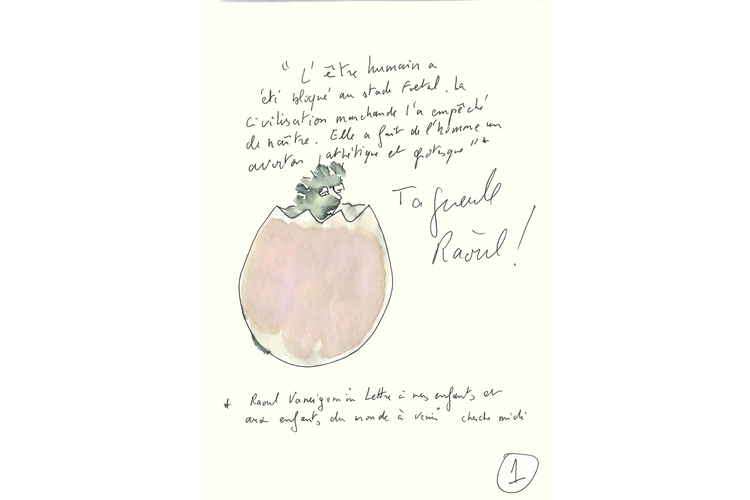 " L'être humain a
été bloqué au stade foetal. La
Civilisation marchande l'a empêché
de naître. Elle a fait de l'homme un
avorton pathétique et grotesque "*
Ta gueule
Raoul !
* Raoul Vaneigem in Lettre à mes enfants et
aux enfants du monde à venir" cherche midi
1